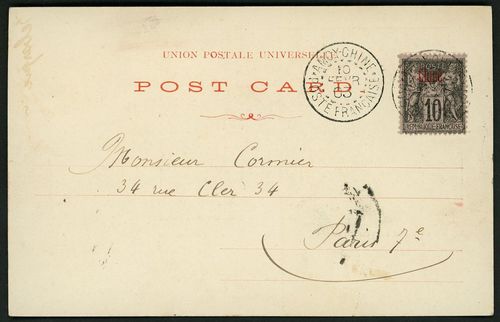 UNION POSTALE UNIVERSELLE
POST CARD
AMOY-CHINE
10
FEVR
03
POSTE FRANCAISE
POSTE
Chine
10
REPUBLIQUE FRANCAISE
Monsieur Cormier
34 rue Cler 34
Paris 7e